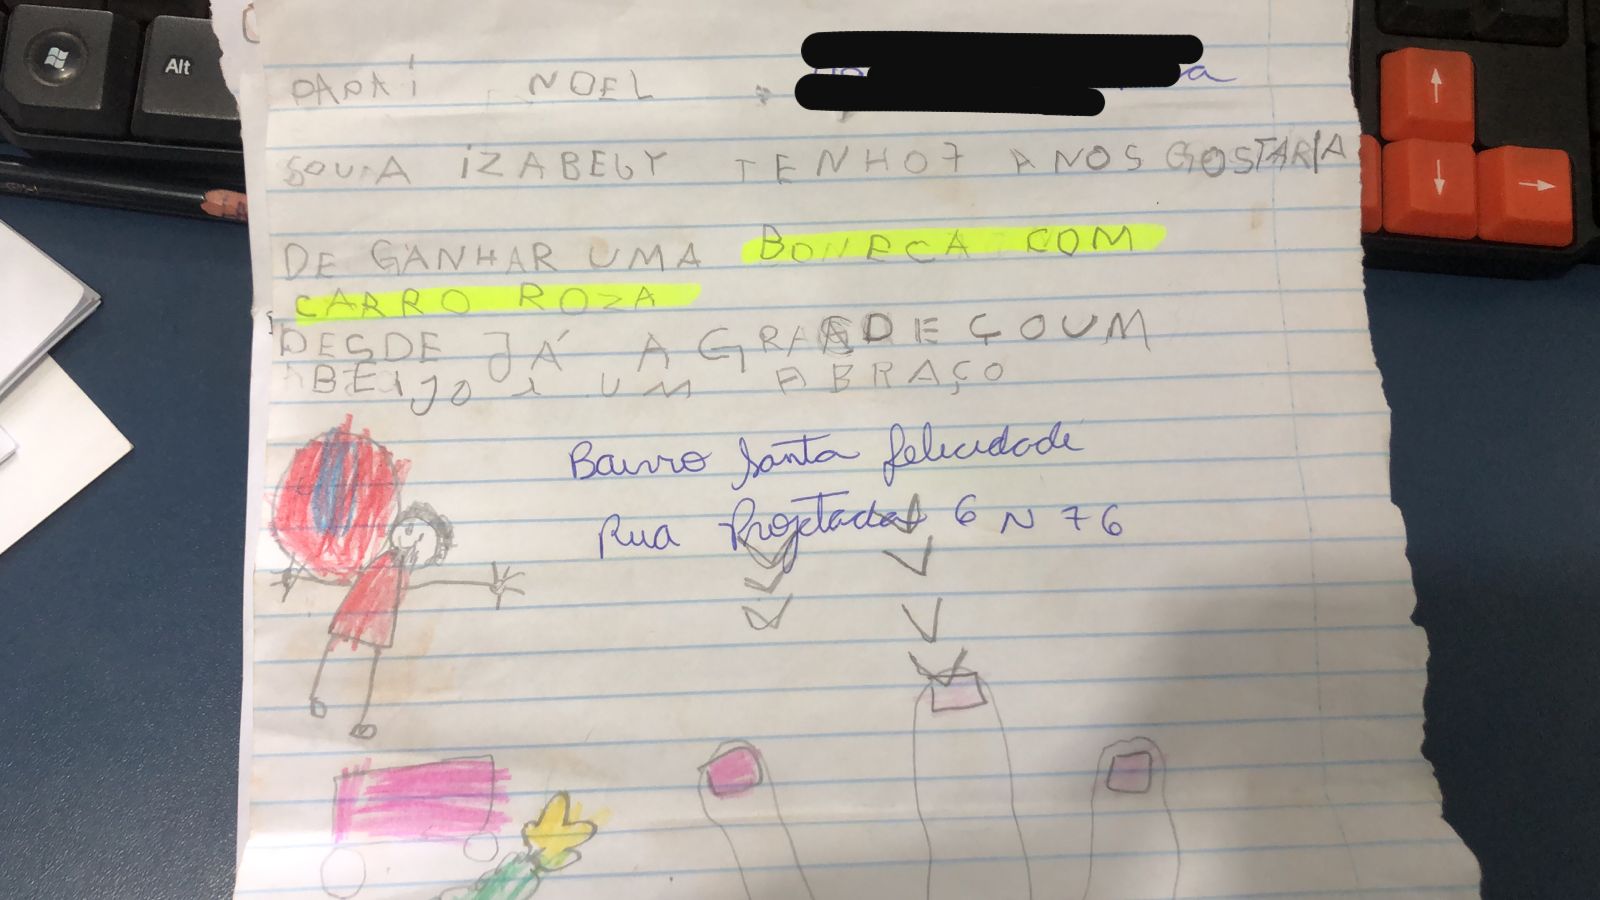 Alt
PAPAI NOEL
SOU A IZABELY TENHO 7 ANOS GOSTARIA
DE GANHAR UMA BONECA COM
CARRO ROZA
DESDE JÁ A GRADEÇO UM
BEIJO e UM ABRAÇO
Bairro Santa felicidade
Rua Projetada 6 N 76